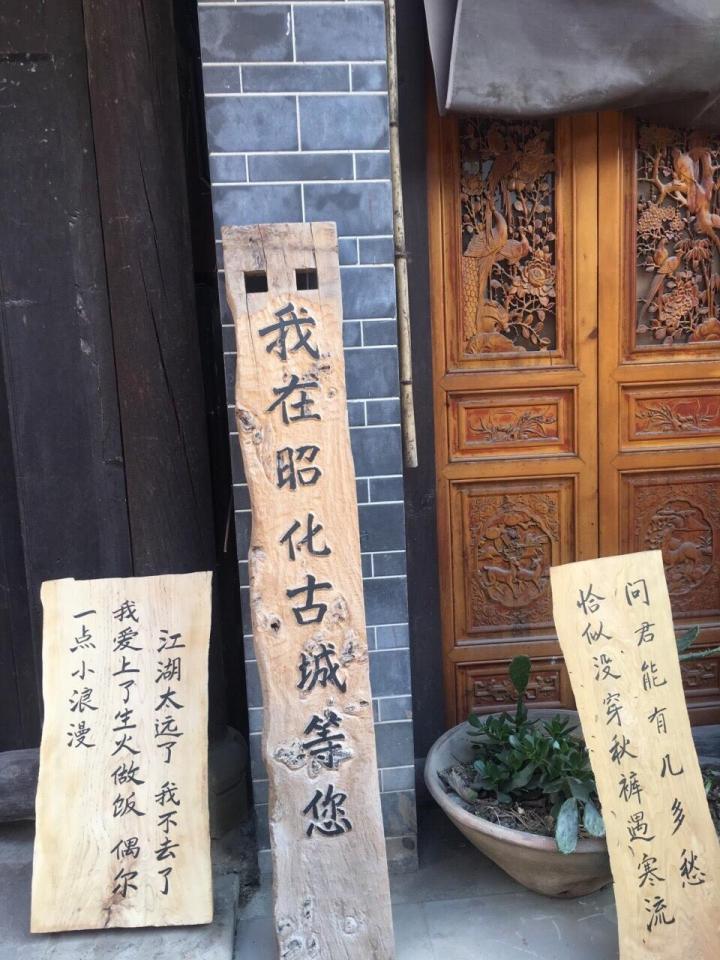 江湖太远了 我不去了
我爱上了生火做饭 偶尔
一点小浪漫
我在昭化古城等您
问君能有几多愁
恰似没穿秋裤遇寒流